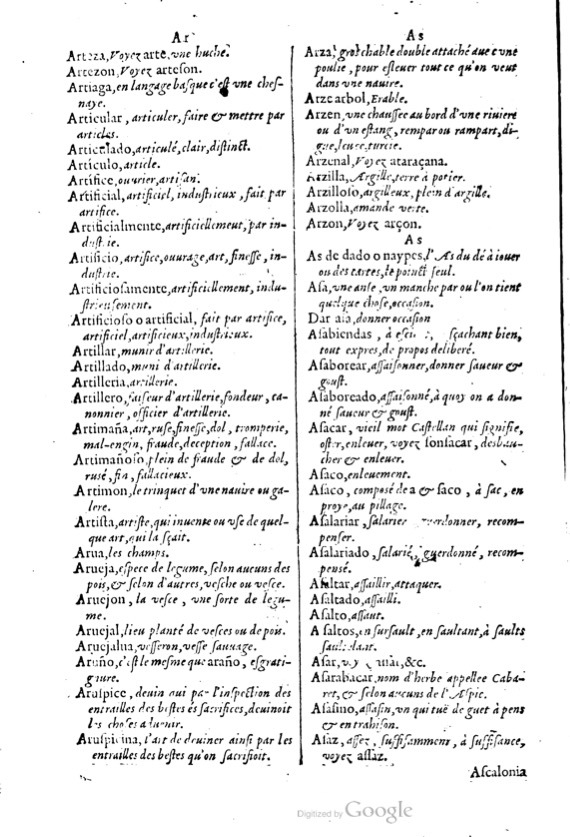 Ar
Arteza, Voyez arte, vne huche.
Artezon, Voyez arteſon.
Artiaga, en langage baſque c'eſt vne cheſ-
naye.
Articular, articuler, faire & mettre par
articles.
Articulado, articulé, clair, diſtinct.
Articulo, article.
Artifice, ouurier, artiſan.
Artificial, artificiel, induſtrieux, fait par
artifice.
Artificialmente, artificiellement, par in-
duſtrie.
Artificio, artifice, ouurage, art, fineſſe, in-
duſtrie.
Artificioſamente, artificiellement, indu-
ſtrieuſement.
Artificioſo o artificial, fait par artifice,
artificiel, artificieux, induſtrieux.
Artillar, munir d'artillerie.
Artillado, muni d'artillerie.
Artilleria, artillerie.
Artillero, faiſeur d'artillerie, fondeur, ca-
nonnier, officier d'artillerie.
Artimaña, art, ruſe, fineſſe, dol, tromperie,
mal-engin, fraude, deception, fallace.
Artimañoſo, plein de fraude & de dol,
ruſé, fin, fallacieux.
Artimon, le trinquet d'vne nauire ou ga-
lere.
Artiſta, artiſte, qui inuente ou vſe de quel-
que art, qui la ſçait.
Arua, les champs.
Arueja, eſpece de legume, ſelon aucuns des
pois, & ſelon d'autres, veſche ou veſce.
Aruejon, la veſce, vne ſorte de legu-
me.
Aruejal, lieu planté de veſces ou de pois.
Aruejalua, veſſeron, veſſe ſauuage.
Aruño, c'eſt le meſme que araño, eſgrati-
gnure.
Aruſpice, deuin qui par l'inſpection des
entrailles des beſtes és ſacrifices, deuinoit
les choſes à venir.
Aruſpicina, l'art de deuiner ainſi par les
entrailles des beſtes qu'on ſacrifioit.
As
Arza, groſ chable double attaché auec vne
poulie, pour eſleuer tout ce qu'on veut
dans vne nauire.
Arze arbol, Erable.
Arzen, vne chauſſee au bord d'vne riuiere
ou d'vn eſtang, rempar ou rampart, di-
gue, leuee, turcie.
Arzenal, Voyez ataraçana.
Arzilla, Argille, terre à potier.
Arzilloſo, argilleux, plein d'argille.
Arzolla, amande verte.
Arzon, Voyez arçon.
As
As de dado o naypes, l'As du dé à iouer
ou des cartes, le poinct ſeul.
Aſa, vne anſe, vn manche par ou l'on tient
quelque choſe, occaſion.
Dar aſa, donner occaſion
Aſabiendas, à ſçachant bien,
tout expres, de propos deliberé.
Aſaborear, aſſaiſonner, donner ſaueur &
gouſt.
Aſaboreado, aſſaiſonné, à quoy on a don-
né ſaueur & gouſt.
Aſacar, vieil mot Caſtellan qui ſignifie,
oſter, enleuer, voyez ſonſacar, deſbau-
cher & enleuer.
Aſaco, enleuement.
Aſaco, compoſé de a & ſaco, à ſac, en
proye, au pillage.
Aſalariar, ſalarier guerdonner, recom-
penſer.
Aſalariado, ſalarié, guerdonné, recom-
penſé.
Aſaltar, aſſaillir, attaquer.
Aſaltado, aſſailli.
Aſalto, aſſaut.
A ſaltos, en ſurſault, en ſaultant, à ſaults
Aſar, &c.
Aſarabacar, nom d'herbe appellee Caba-
ret, & ſelon aucuns de l'Aſpic.
Aſaſino, aſſaſin, vn qui tuë de guet à pens
& en trahiſon.
Aſaz, aſſez, ſuffiſamment, à ſuffiſance,
voyez aſſaz.
Aſcalonia
Digitized by Google